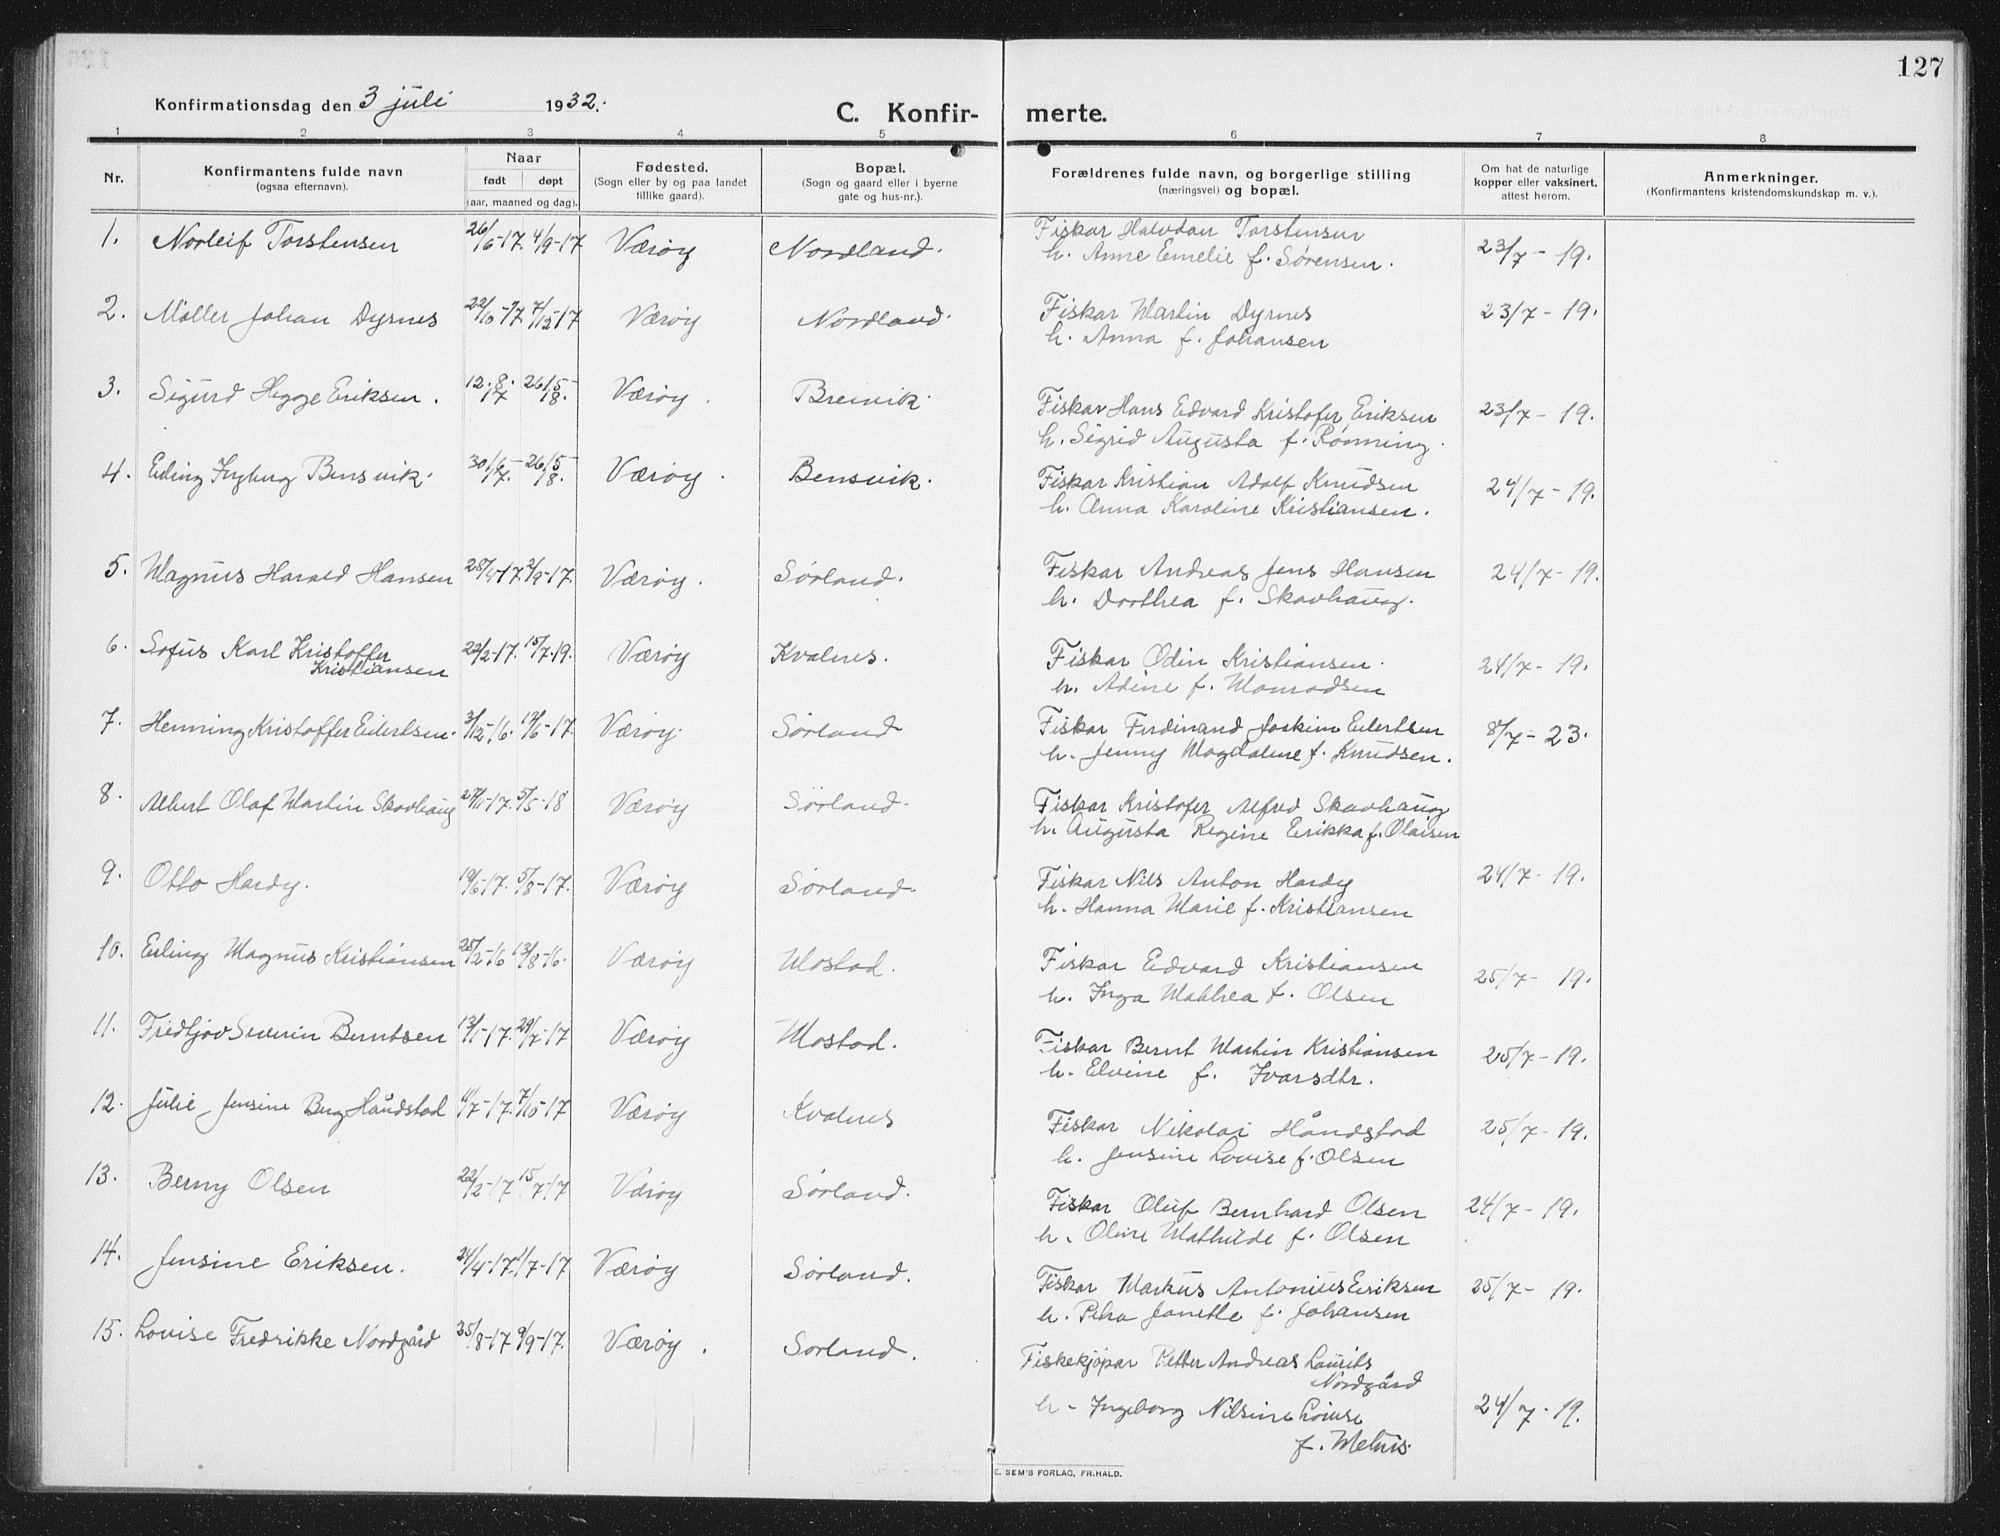 127
Konfirmationsdag den 3 juli 1932.
C. Konfirmerte.
1 2 3 4 5 6 7 8
Nr.
Konfirmantens fulde navn
(ogsaa efternavn).
Naar
født døpt
(aar, maaned og dag).
Fødested.
(Sogn eller by og paa landet
tillike gaard).
Bopæl.
(Sogn og gaard eller i byerne
gate og hus-nr.).
Forældrenes fulde navn, og borgerlige stilling
(næringsvei) og bopæl.
Om hat de naturlige
kopper eller vaksinert,
attest herom.
Anmerkninger.
(Konfirmantens kristendomskundskap m. v.).
1. Norleif Torstensen 26/6-17. 4/9-17 Værøy Nordland. Fiskar Halvdan Torstensen 23/7-19.
h. Anne Emelie f. Sørensen.
2. Møller Johan Dyrnes 22/10-17. 7/12-17 Værøy Nordland. Fiskar Martin Dyrnes 23/7-19.
h. Anna f. Johansen
3. Sigurd Hegge Eriksen. 12.8.17 26/5-18. Værøy. Breivik. Fiskar Hans Edvard Kristofer Eriksen 23/7-19.
h. Sigrid Augusta f. Rønning.
4. Bensvik. Værøy. Bensvik. Fiskar Kristian Adolf Knudsen 24/7-19.
26/5-18.
h. Anna Karoline Kristiansen.
5. Magnus Harald Hansen 28/4-17. 2/9-17. Værøy. Sørland. Fiskar Andreas Jens Hansen 24/7-19.
h. Dorthea f. Skavhaug.
6. Sofus Karl Kristoffer 22/2-17. 15/7-19. Værøy Kvalnes. Fiskar Odin Kristiansen. 24/7-19.
Kristiansen
h. Adine f. Monradsen
7. Henning Kristoffer Eilertsen. 3/12-16. Værøy. Sørland Fiskar Ferdinand Joakim Eilertsen 8/7-23.
h. Jenny Magdalene f. Knudsen.
8. Albert Olaf Martin Skavhaug 5/5-18 Værøy Sørland. Fiskar Kristofer Alfred Skavhaug
h. Augusta Regine Erikka f. Olaisen
9. Otto Hardy. 19/6-17. 5/8-17. Værøy Sørland. Fiskar Nils Anton Hardy 24/7-19.
h. Hanna Marie f. Kristiansen
10. Erling Magnus Kristiansen 25/2-16 13/8-16. Værøy Mostad. Fiskar Edvard Kristiansen 25/7-19.
h. Inga Mathea f. Olsen
11. Fredtjov Severin Berntsen 13/1-17. 29/7-17 Værøy Mostad. Fiskar Bernt Martin Kristiansen 25/7-19.
h. Elvine f. Ivarsdtr.
12. Julie Jensine Berg Håndstad 11/7-17. 7/10-17 Værøy Kvalnes Fiskar Nikolai Håndstad 25/7-19.
h. Jensine Lovise f. Olsen
13. Berny Olsen 22/2-17 15/7-17 Værøy Sørland. Fiskar Oluf Bernhard Olsen 24/7-19.
h. Oline Mathilde f. Olsen
14. Jensine Eriksen. 24/4-17. 1/7-17 Værøy Sørland. Fiskar Markus Antonius Eriksen 25/7-19.
h. Petra Janette f. Johansen
15. Lovise Fredrikke Nordgård 25/8-17 9/9-17. Værøy. Sørland. Fiskekjøpar Petter Andreas Laurits
Nordgård
h. Ingeborg Nilsine Lovise 24/7-19.
f.
E. SEM'S FORLAG, FR.HALD.